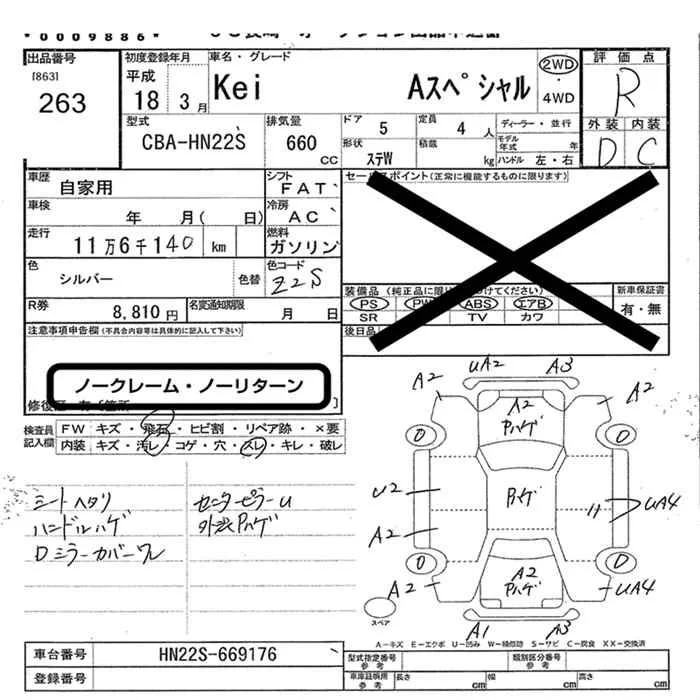 *0009886*
出品番号
[863]
263
初度登録年月
平成
18 3月
車名・グレード
Kei Aスペシャル
2WD
4WD
評価点
R
外装 内装
D C
型式
CBA-HN22S
排気量
660 CC
ドア 5
定員 4人
形状 ステW
積載 kg
ディーラー・並行
モデル年式 年
ハンドル 左・右
車歴
自家用
車検
年 月( 日)
走行
11万6千140 km
シフト
FAT
冷房
AC
燃料
ガソリン
色
シルバー
色替
色コード
Z2S
R券
8,810円
名変通知期限
月 日
セールスポイント(正常に機能するものに限ります)
PS PW ABS エアB
SR TV カワ
新車保証書
有・無
後日品
注意事項申告欄(不具合内容等は具体的に記入して下さい)
ノークレーム・ノーリターン
検査員記入欄
FW キズ・飛石・ヒビ割・リペア跡・×要
内装 キズ・汚レ・コゲ・穴・スレ・キレ・破レ
シートヘタリ
ハンドルハゲ
Dミラーカバーワレ
センターピラーU
外装Pハゲ
A2 UA2 A3 A2
A2
Pハゲ
U2
Pハゲ
UA4
A2
A2
A2
Pハゲ
UA4
A1 A3
スペア
A-キズ E-エクボ U-凹み W-補修跡 S-サビ C-腐食 XX-交換済
車台番号 HN22S-669176
登録番号
型式指定番号 参考
類別区分番号 参考
車庫証明用 参考
長さ cm
幅 cm
高さ cm